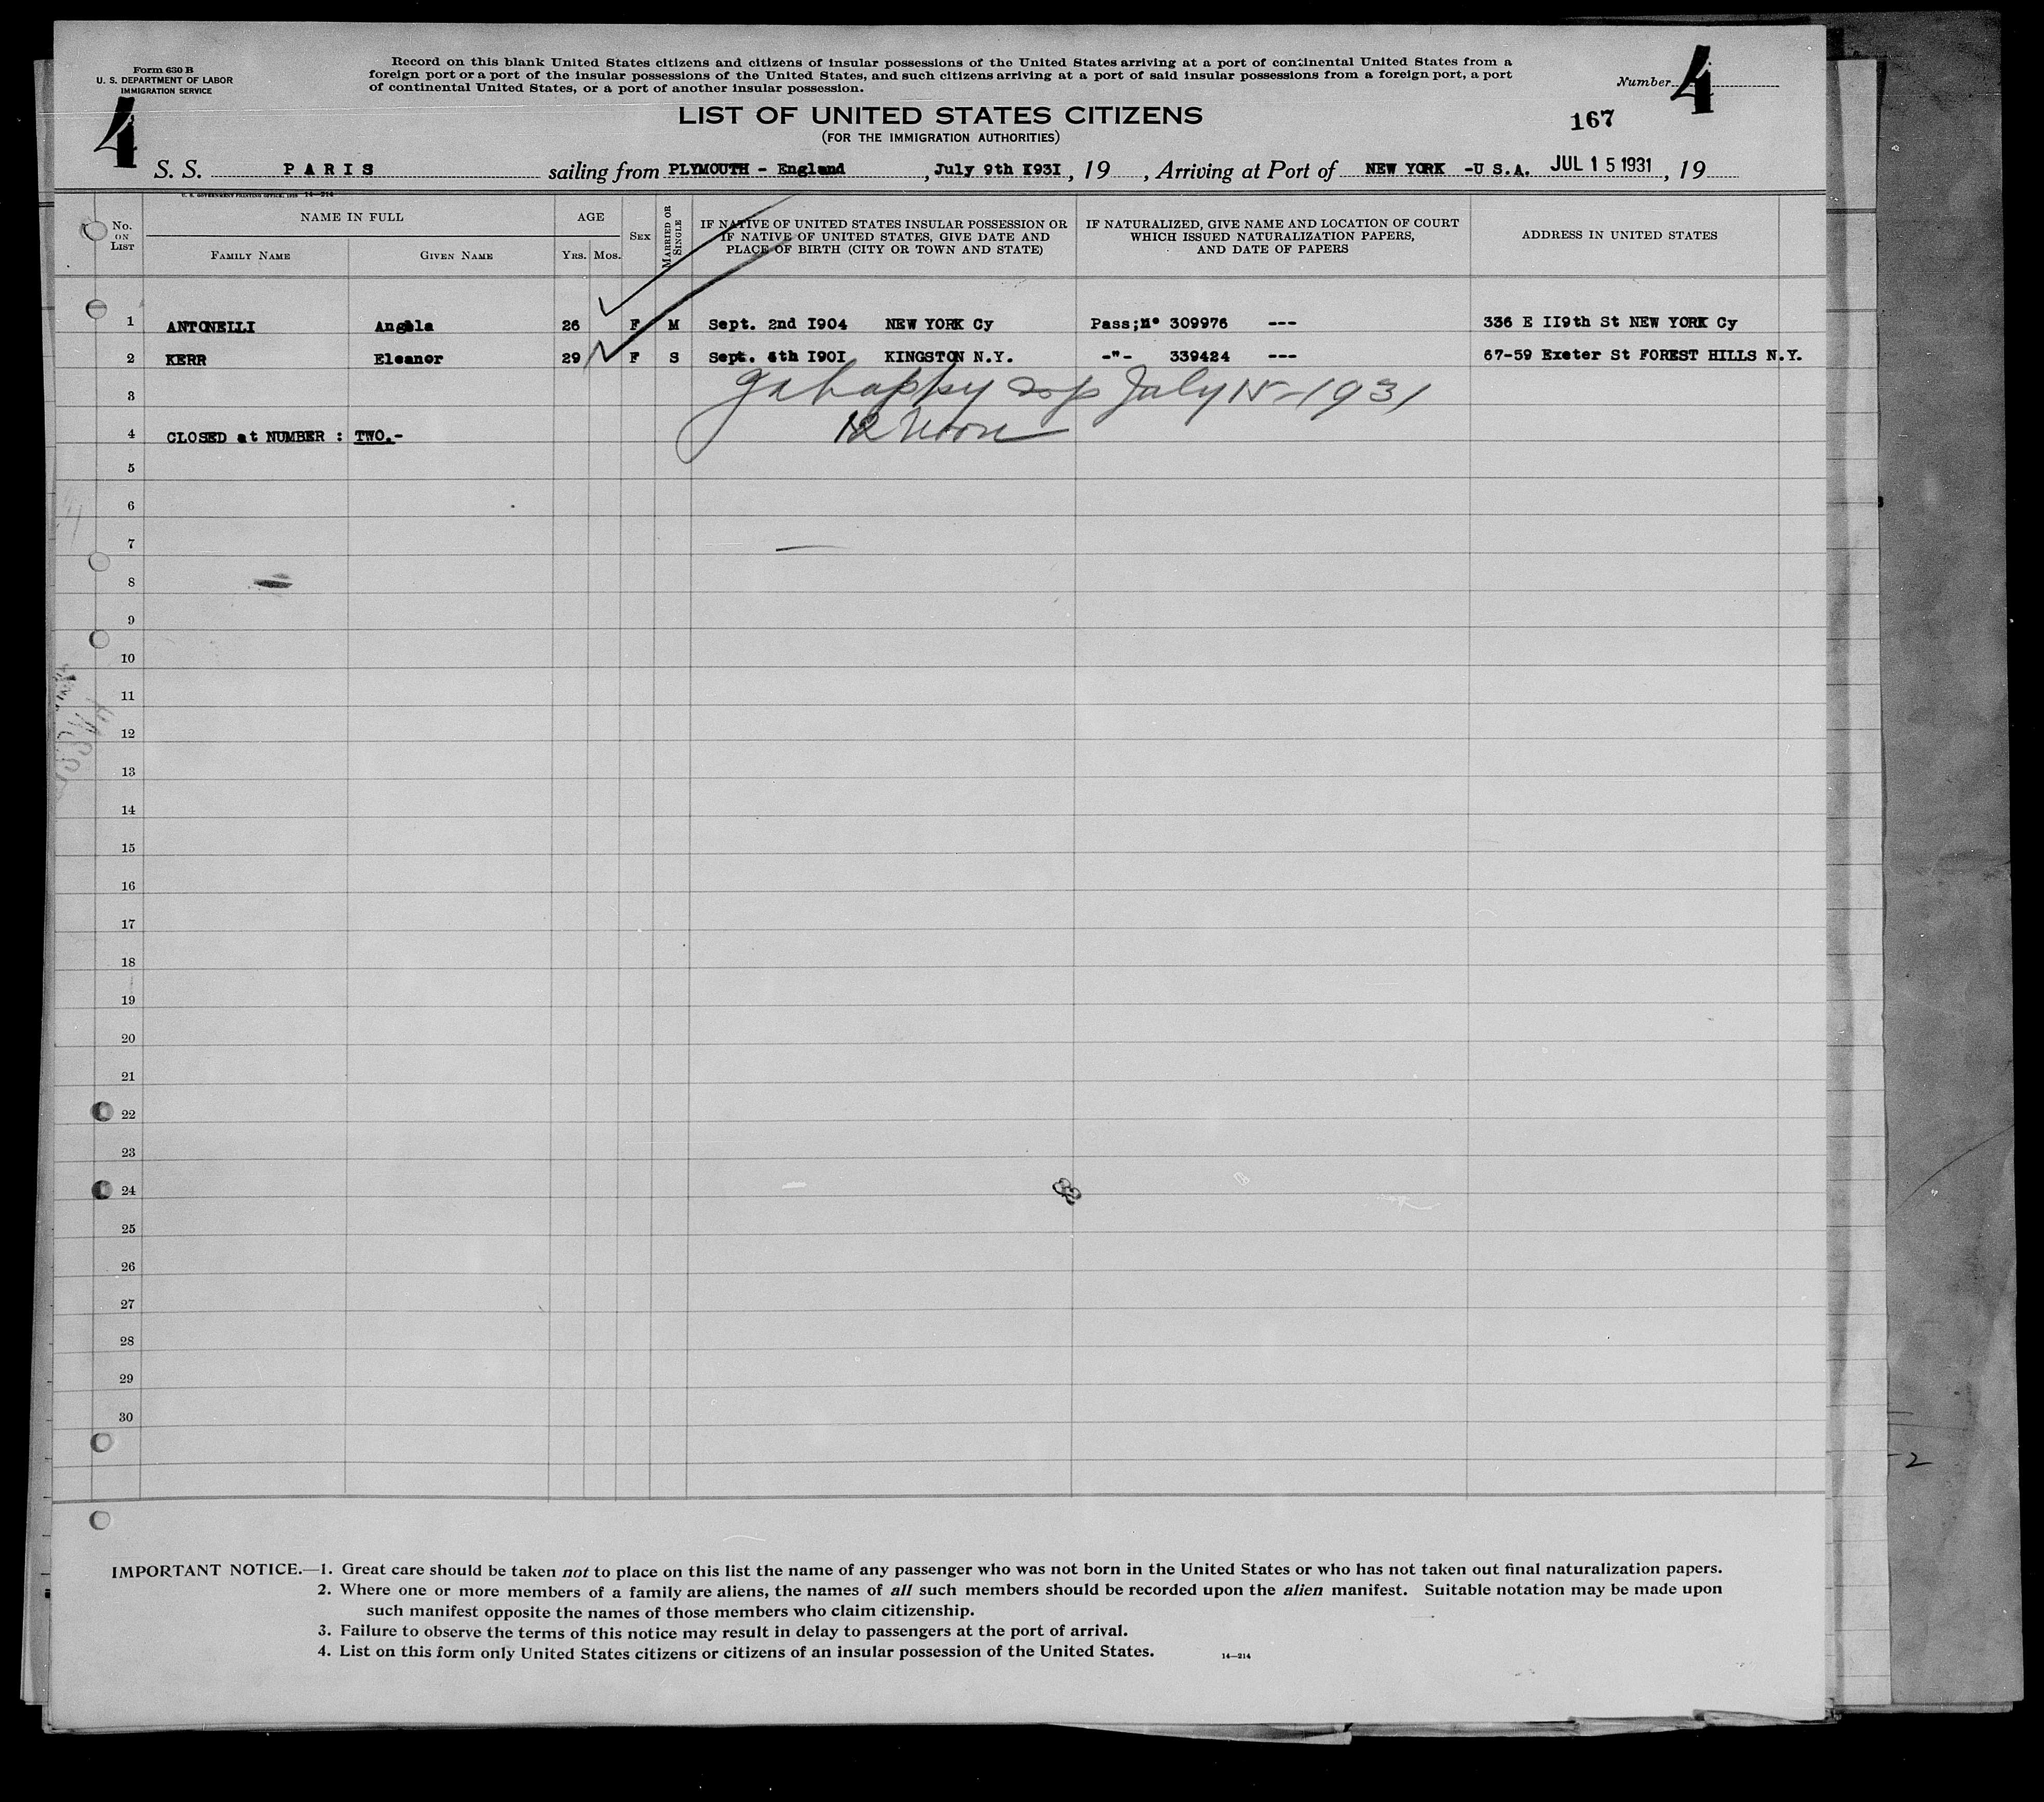 Form 630 B
U. S. DEPARTMENT OF LABOR
IMMIGRATION SERVICE
Record on this blank United States citizens and citizens of insular possessions of the United States arriving at a port of continental United States from a
foreign port or a port of the insular possessions of the United States, and such citizens arriving at a port of said insular possessions from a foreign port, a port
of continental United States, or a port of another insular possession.
Number 4
4
LIST OF UNITED STATES CITIZENS
(FOR THE IMMIGRATION AUTHORITIES)
167
S. S. PARIS sailing from PLYMOUTH - England, July 9th I93I, 19 , Arriving at Port of NEW YORK -U S.A. JUL 15 1931, 19
U. S. GOVERNMENT PRINTING OFFICE: 14—214
No. ON LIST
NAME IN FULL
FAMILY NAME
GIVEN NAME
AGE
YRS. MOS.
SEX
MARRIED OR SINGLE
IF NATIVE OF UNITED STATES INSULAR POSSESSION OR
IF NATIVE OF UNITED STATES, GIVE DATE AND
PLACE OF BIRTH (CITY OR TOWN AND STATE)
IF NATURALIZED, GIVE NAME AND LOCATION OF COURT
WHICH ISSUED NATURALIZATION PAPERS,
AND DATE OF PAPERS
ADDRESS IN UNITED STATES
1 ANTONELLI Angela 26 F M Sept. 2nd I904 NEW YORK Cy Pass;N° 309976 --- 336 E II9th St NEW YORK Cy
2 KERR Eleanor 29 F S Sept. th I90I KINGSTON N.Y. -"- 339424 --- 67-59 Exeter St FOREST HILLS N.Y.
3 July 15-1931
4 CLOSED at NUMBER : TWO.- 12 Noon
5
6
7
8
9
10
11
12
13
14
15
16
17
18
19
20
21
22
23
24
25
26
27
28
29
30
2
IMPORTANT NOTICE.—1. Great care should be taken not to place on this list the name of any passenger who was not born in the United States or who has not taken out final naturalization papers.
2. Where one or more members of a family are aliens, the names of all such members should be recorded upon the alien manifest. Suitable notation may be made upon
such manifest opposite the names of those members who claim citizenship.
3. Failure to observe the terms of this notice may result in delay to passengers at the port of arrival.
4. List on this form only United States citizens or citizens of an insular possession of the United States.
14—214